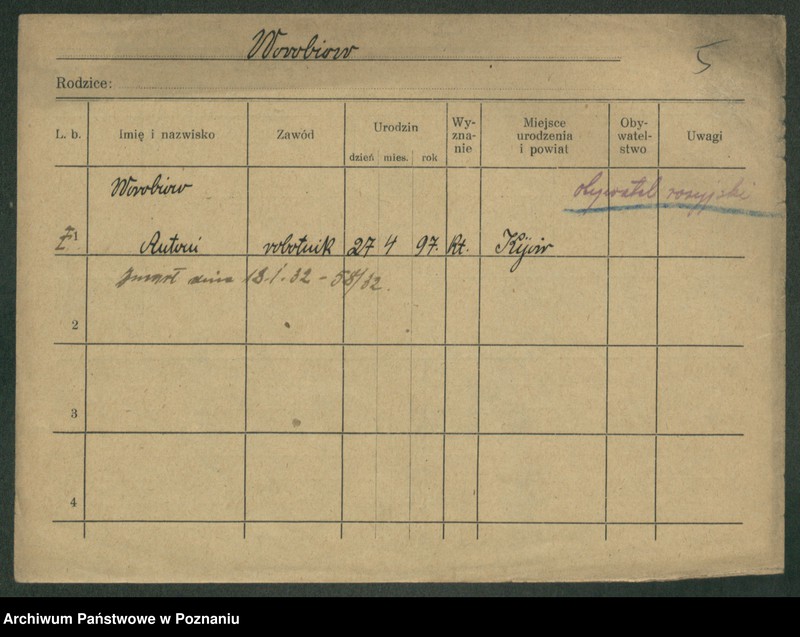 Worobiow
5
Rodzice:
L. b. Imię i nazwisko Zawód Urodzin dzień mies. rok Wy-zna-nie Miejsce urodzenia i powiat Oby-watel-stwo Uwagi
Worobiow obywatel rosyjski
1 Antoni robotnik 27 4 97. kt. Kijów
zmarł dnia 18.1.32 - 58/32.
2
3
4
Archiwum Państwowe w Poznaniu